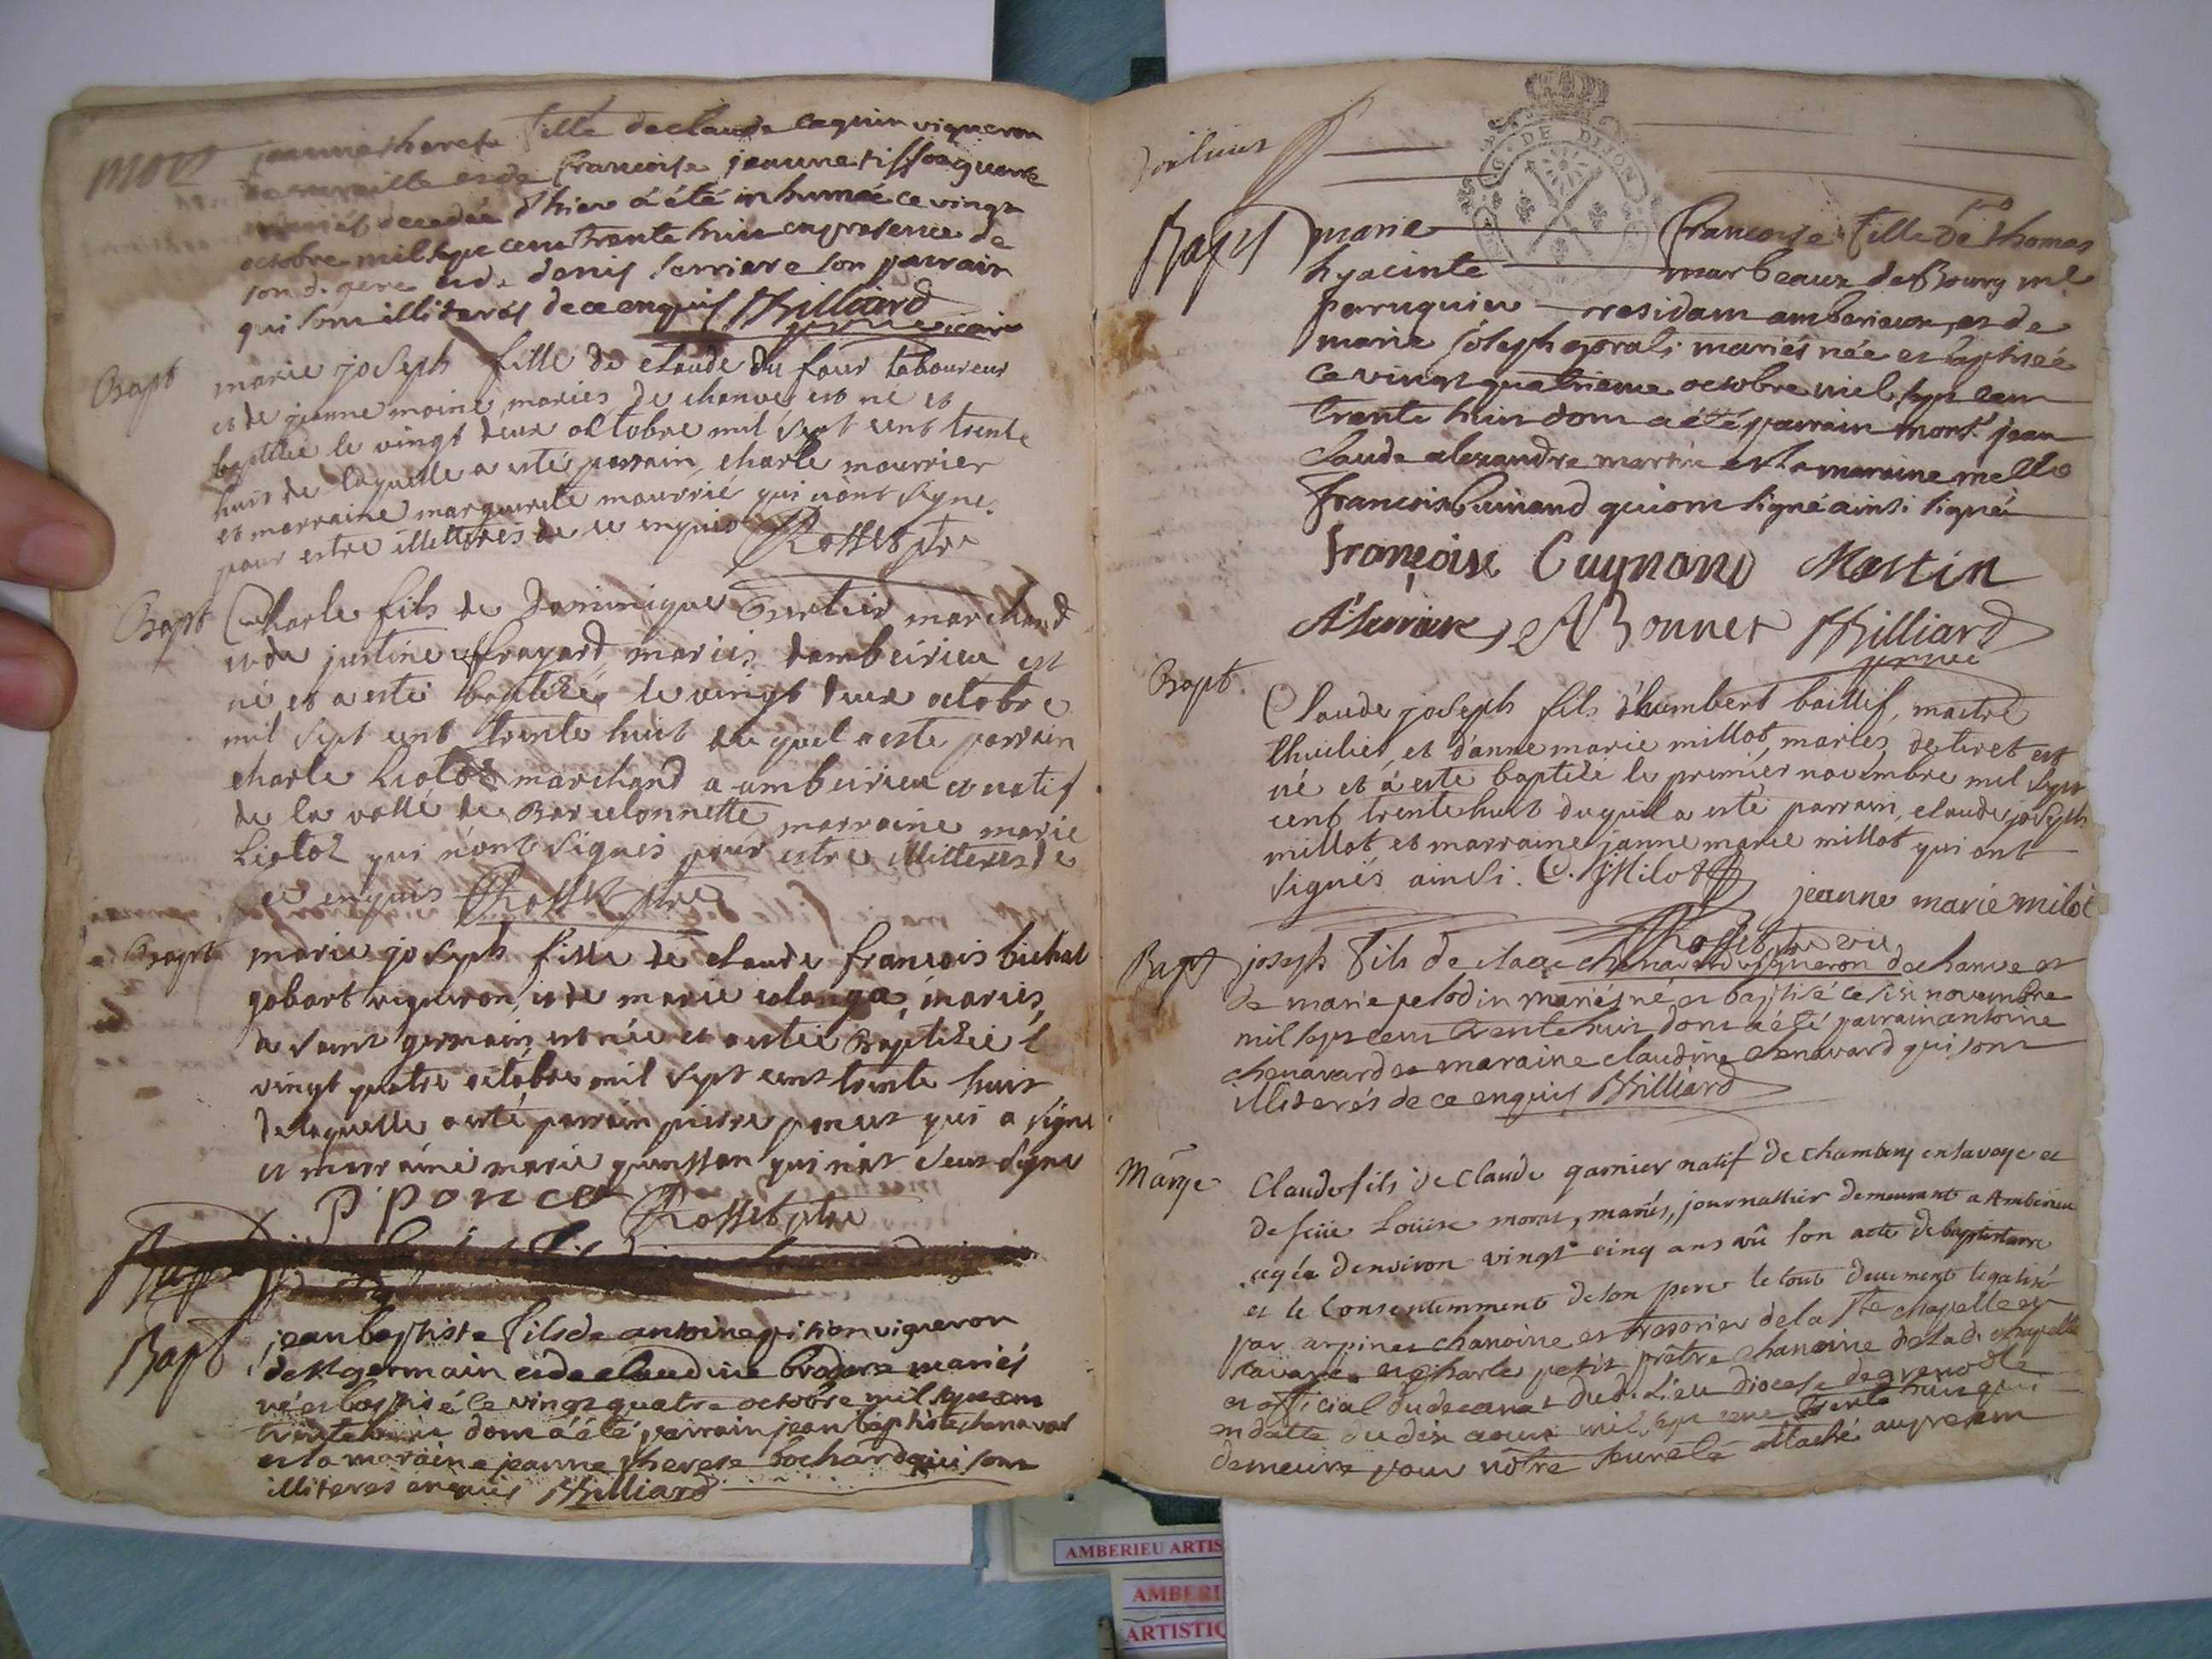 mort jeanne therese fille de claude caguin vigneron
de vareille et de francoise jeanne tissot
mariés decedée d'hier a été inhumée ce vingt
octobre mil sept cent trente huit en presence de
son d. pere et de denis serriere son parrain
qui sont illiterés de ce enquis Billiard
vicaire
Bapt marie joseph fille de claude du four laboureur
et de jeanne moine, mariés, de chanves est né et
baptisée le vingt deux octobre mil sept cent trente
huit de laquelle a esté parrain, charle mourrier
et marraine marguerite mourrié qui n'ont signe
pour estre illitteres de ce enquis Rosset ptre
Bapt Charle fils de Dominique marchand
et de justine frayard mariés d'ambeirieu est
né et a esté baptizé, le vingt deux octobre
mil sept cent trente huit du quel a esté parrain
charle Liotot marchand a ambeirieu et natif
de la vallé de Barcelonnette marraine marie
Liotot qui n'ont signés pour estre illitteres de
ce enquis Rosset ptre
Bapt marie joseph fille de claude francois bichat
gobart vigneron, et de marie colonga, mariés,
a saint germain est née et a estée Baptisée l
vingt quatre octobre mil sept cent trente huit
de laquelle a esté parrain pierre poncet qui a signe
et marraine marie qui n'at seut signe
P poncet Rosset ptre
Bapt jean baptiste fils de antoine pition vigneron
de st germain et de claudine brodure mariés
né et baptisé ce vingt quatre octobre mil sept cent
trente huit dont a été parrain jean baptiste chenavard
et la maraine jeanne therese bochard qui sont
illiteres enquis Billiard
G. DE DIJON
Bapt marie francoise fille de thomas
hyacinte marbeaux de Bourg me
perruquier residant amberieux, et de
marie joseph gorati mariés née et baptisée
ce vingt quatrieme octobre mil sept cent
trente huit dont a été parrain monsr jean
claude alexandre martin et la maraine melle
francoise Guinand qui ont signé ainsi signé
françoise Guynand Martin
A Serriere A Bonnet Billiard
Bapt. Claude joseph fils d'humbert baillif, maitre
thuilier, et d'anne marie millot, mariés, de tiret est
né et a esté baptisé le premier novembre mil sept
cent trente huit duquel a esté parrain, claude joseph
millot et marraine janne marie millot qui ont
signés ainsi. C. J Milot jeanne marie milot
Rosset ptre vic
Bapt joseph fils de claude chenavard vigneron de chanve et
de marie pelodin mariés né et baptisé ce six novembre
mil sept cent trente huit dont a été parrain antoine
chenavard et maraine claudine chenavard qui sont
illiterés de ce enquis Billiard
Marge Claude fils de Claude garnier natif de chambery en savoye et
de feüe Loüise moret, mariés, journallier demeurant a Amberieu
agée d'environ vingt cinq ans vû son acte de baptistaire
et le Consentemment de son pere le tout deuement legalisé
par arpines chanoine et tresorier de la Ste chapelle de
savoye et charle petit prêtre chanoine de la d. chapelle
et official du decanat du d. Lieu diocese de grenoble
en datte du dix aoust mil sept cent trente huit qui
demeure pour nôtre seureté attaché au present
AMBERIEU ARTIS
AMBERI
ARTISTIQ